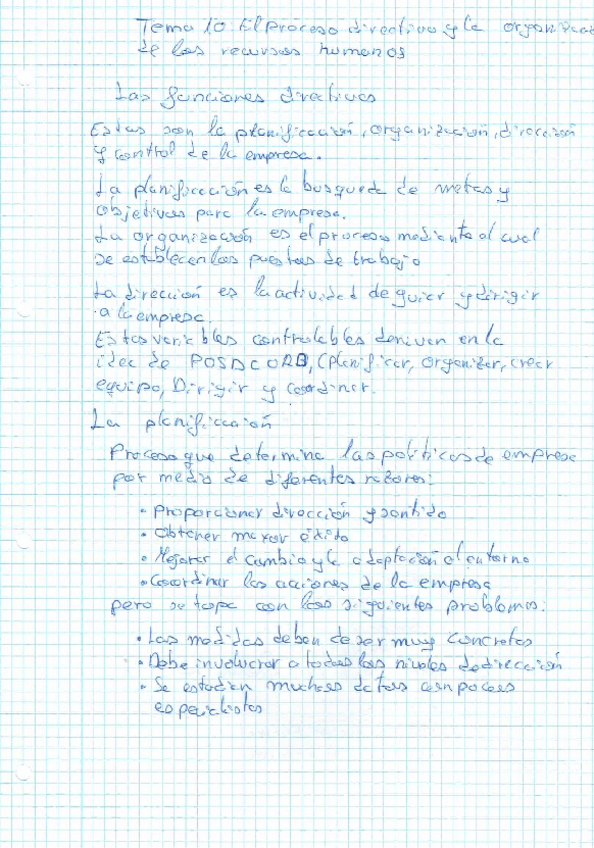 Tema 10: El proceso directivo y la organizac
de los recursos humanos
Las funciones directivas
Estas son la planificación, organización, dirección
y control de la empresa.
La planificación es la busqueda de metas y
objetivos para la empresa.
La organización es el proceso mediante el cual
se establecen los puestos de trabajo
La dirección es la actividad de guiar y dirigir
a la empresa.
Estas variables controlables derivan en la
idea de POSDCORB, (Planificar, organizar, crear
equipo, Dirigir y Coordinar.
La planificación
Proceso que determina las politicas de empresa
por medio de diferentes razones:
• Proporcionar dirección y sentido
• Obtener mayor éxido
• Mejorar el cambio y la adaptación al entorno
• Coordinar las acciones de la empresa
pero se topa con los siguientes problemas:
• Las medidas deben de ser muy concretas
• Debe involucrar a todos los niveles de dirección
• Se estudian muchos datos con pocos
especialistas